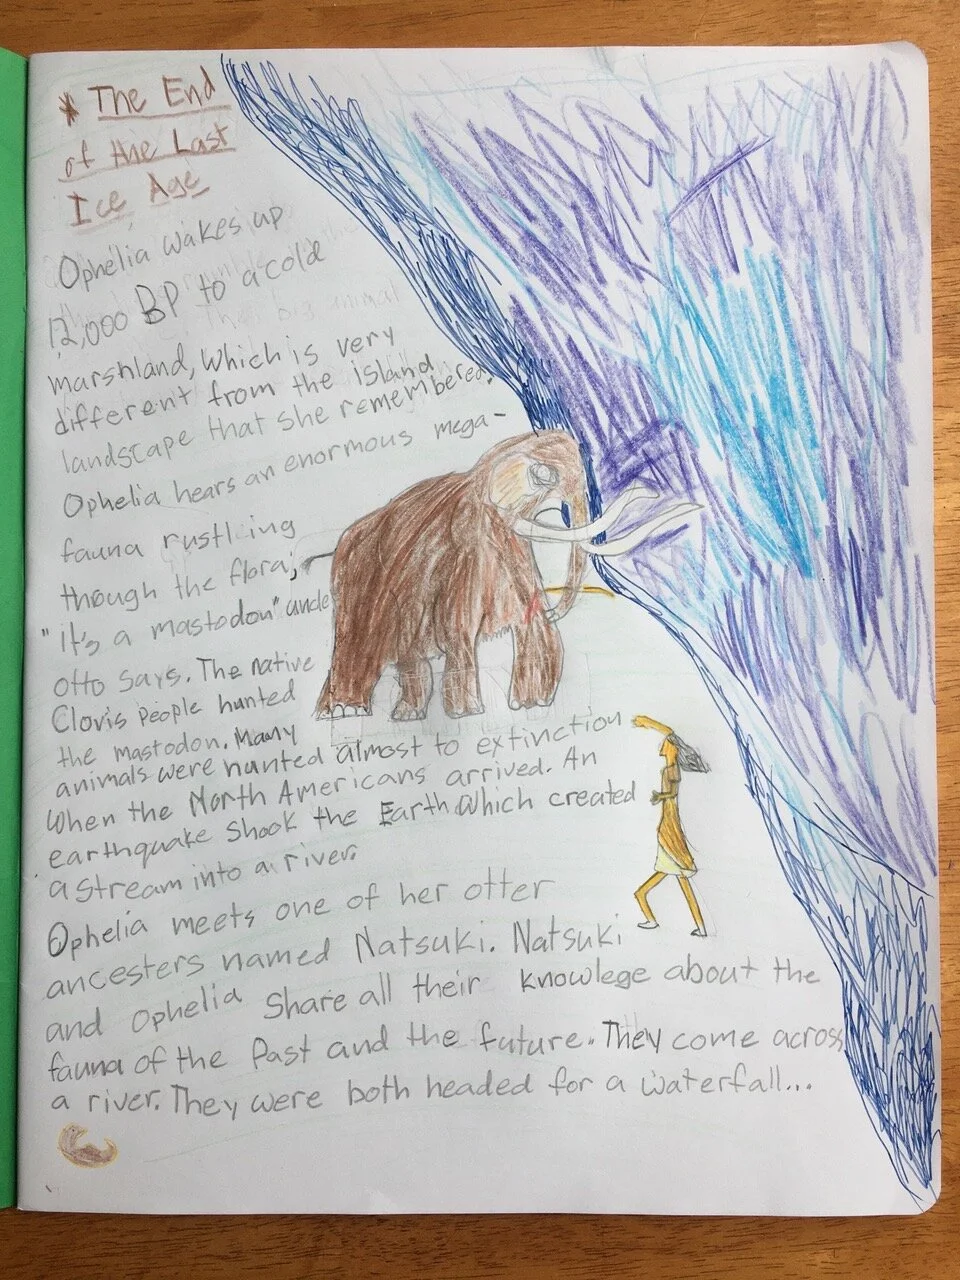 * The End
of the Last
Ice Age
Ophelia wakes up
12,000 BP to a cold
marshland, which is very
different from the island
landscape that she remembered.
Ophelia hears an enormous mega-
fauna rustling
though the flora;
"it's a mastodon" uncle
Otto says. The native
Clovis people hunted
the mastodon. Many
animals were hunted almost to extinction
when the North Americans arrived. An
earthquake shook the Earth which created
a stream into a river.
Ophelia meets one of her otter
ancesters named Natsuki. Natsuki
and Ophelia share all their knowlege about the
fauna of the Past and the future. They come across
a river. They were both headed for a waterfall...